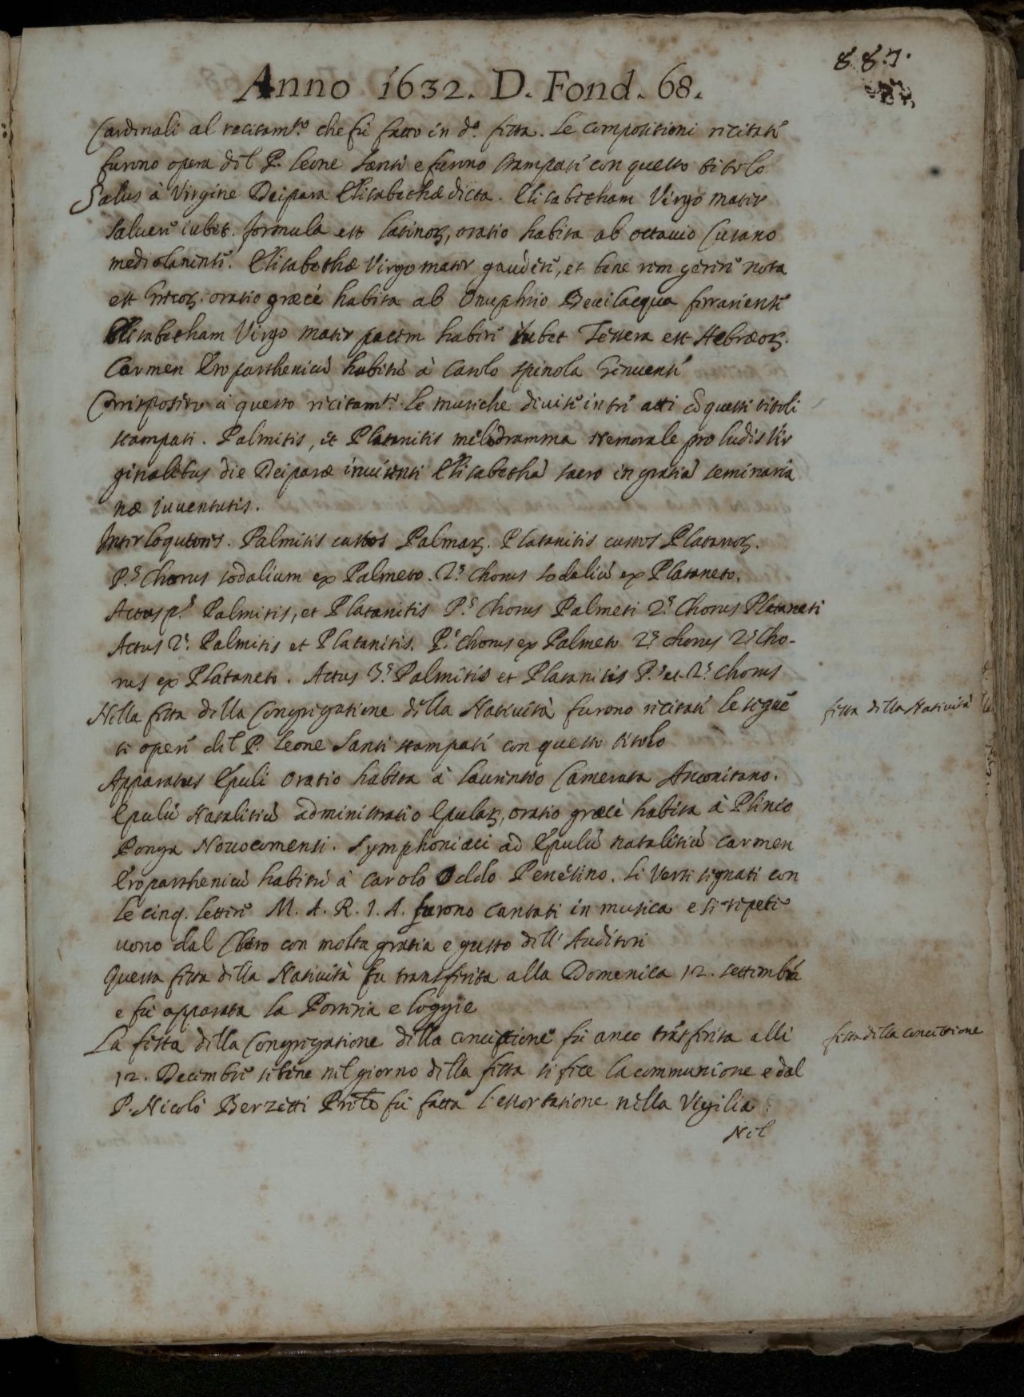 887.
Anno 1632. D. Fond. 68.
Cardinali al recitam.to che fù fatto in d.a festa. Le compositioni recitate
furono opera del P. Leone Santi e furono stampate con questo titolo
Salus à Virgine Deipara Elisabethæ dicta. Elisabetham Virgo mater
salvere iubet. formula est latinorꝫ, oratio habita ab octavio Cusano
mediolanensi. Elisabethæ Virgo mater gaudere, et bene rem gerere nota
est Grecorꝫ. oratio græcè habita ab Onuphrio Bevilacqua ferrariensi
Elisabetham Virgo mater pacem habere iubet Tessera est Hebræorꝫ.
Carmen Proparthenicũ habitũ à Carolo spinola Genuensi
Corrispose à questo recitam.to le musiche divise in trè atti cõ questi titoli
stampati. Palmitis, et Platanitis melodramma Nemorale pro ludis Vir
ginalibus die Deiparæ invisenti Elisabethã sacro in gratiã seminaria
næ iuventutis.
Interloqutores. Palmitis custos Palmarꝫ. Platanitis custos Platanorꝫ.
P.s Chorus sodalium ex Palmeto. 2.s Chorus sodaliũ ex Plataneto.
Actus p.s Palmitis, et Platanitis P.s Chorus Palmeti 2.s Chorus Plataneti
Actus 2.s Palmitis et Platanitis. P.s chorus ex Palmeto 2.s chorus 2.s Cho-
rus ex Plataneto. Actus 3.s Palmitis et Platanitis P.s et 2.s Chorus
Nella festa della Congregatione della Natività furono recitate le seguẽ
festa della Natività
ti opere del P. Leone Santi stampate con questo titolo
Apparatus Epuli oratio habita à laurentio Camerata Anconitano.
Epulũ Natalitiũ administratio Epularꝫ, oratio græcè habita à Plinio
Ponga Novocomensi. Symphoniaci ad Epulũ natalitiũ carmen
Proparthenicũ habitũ à Carolo Oddo Penesino. Li Versi signati con
le cinq. lettere M. A. R. I. A. furono cantati in musica e si repete
vono dal Choro con molta gratia e gusto dell' Auditori
Questa festa della Natività fu transferita alla Domenica 12. settembre
e fù apparata la Porteria e loggie
La festa della Congregatione della Concettione fù anco trãsferita alli
festa della Concettione
12. Decembre sebene nel giorno della festa si fece la communione e dal
P. Nicolò Berzetti Pref.to fù fatta l'essortatione nella Vigilia
Nel